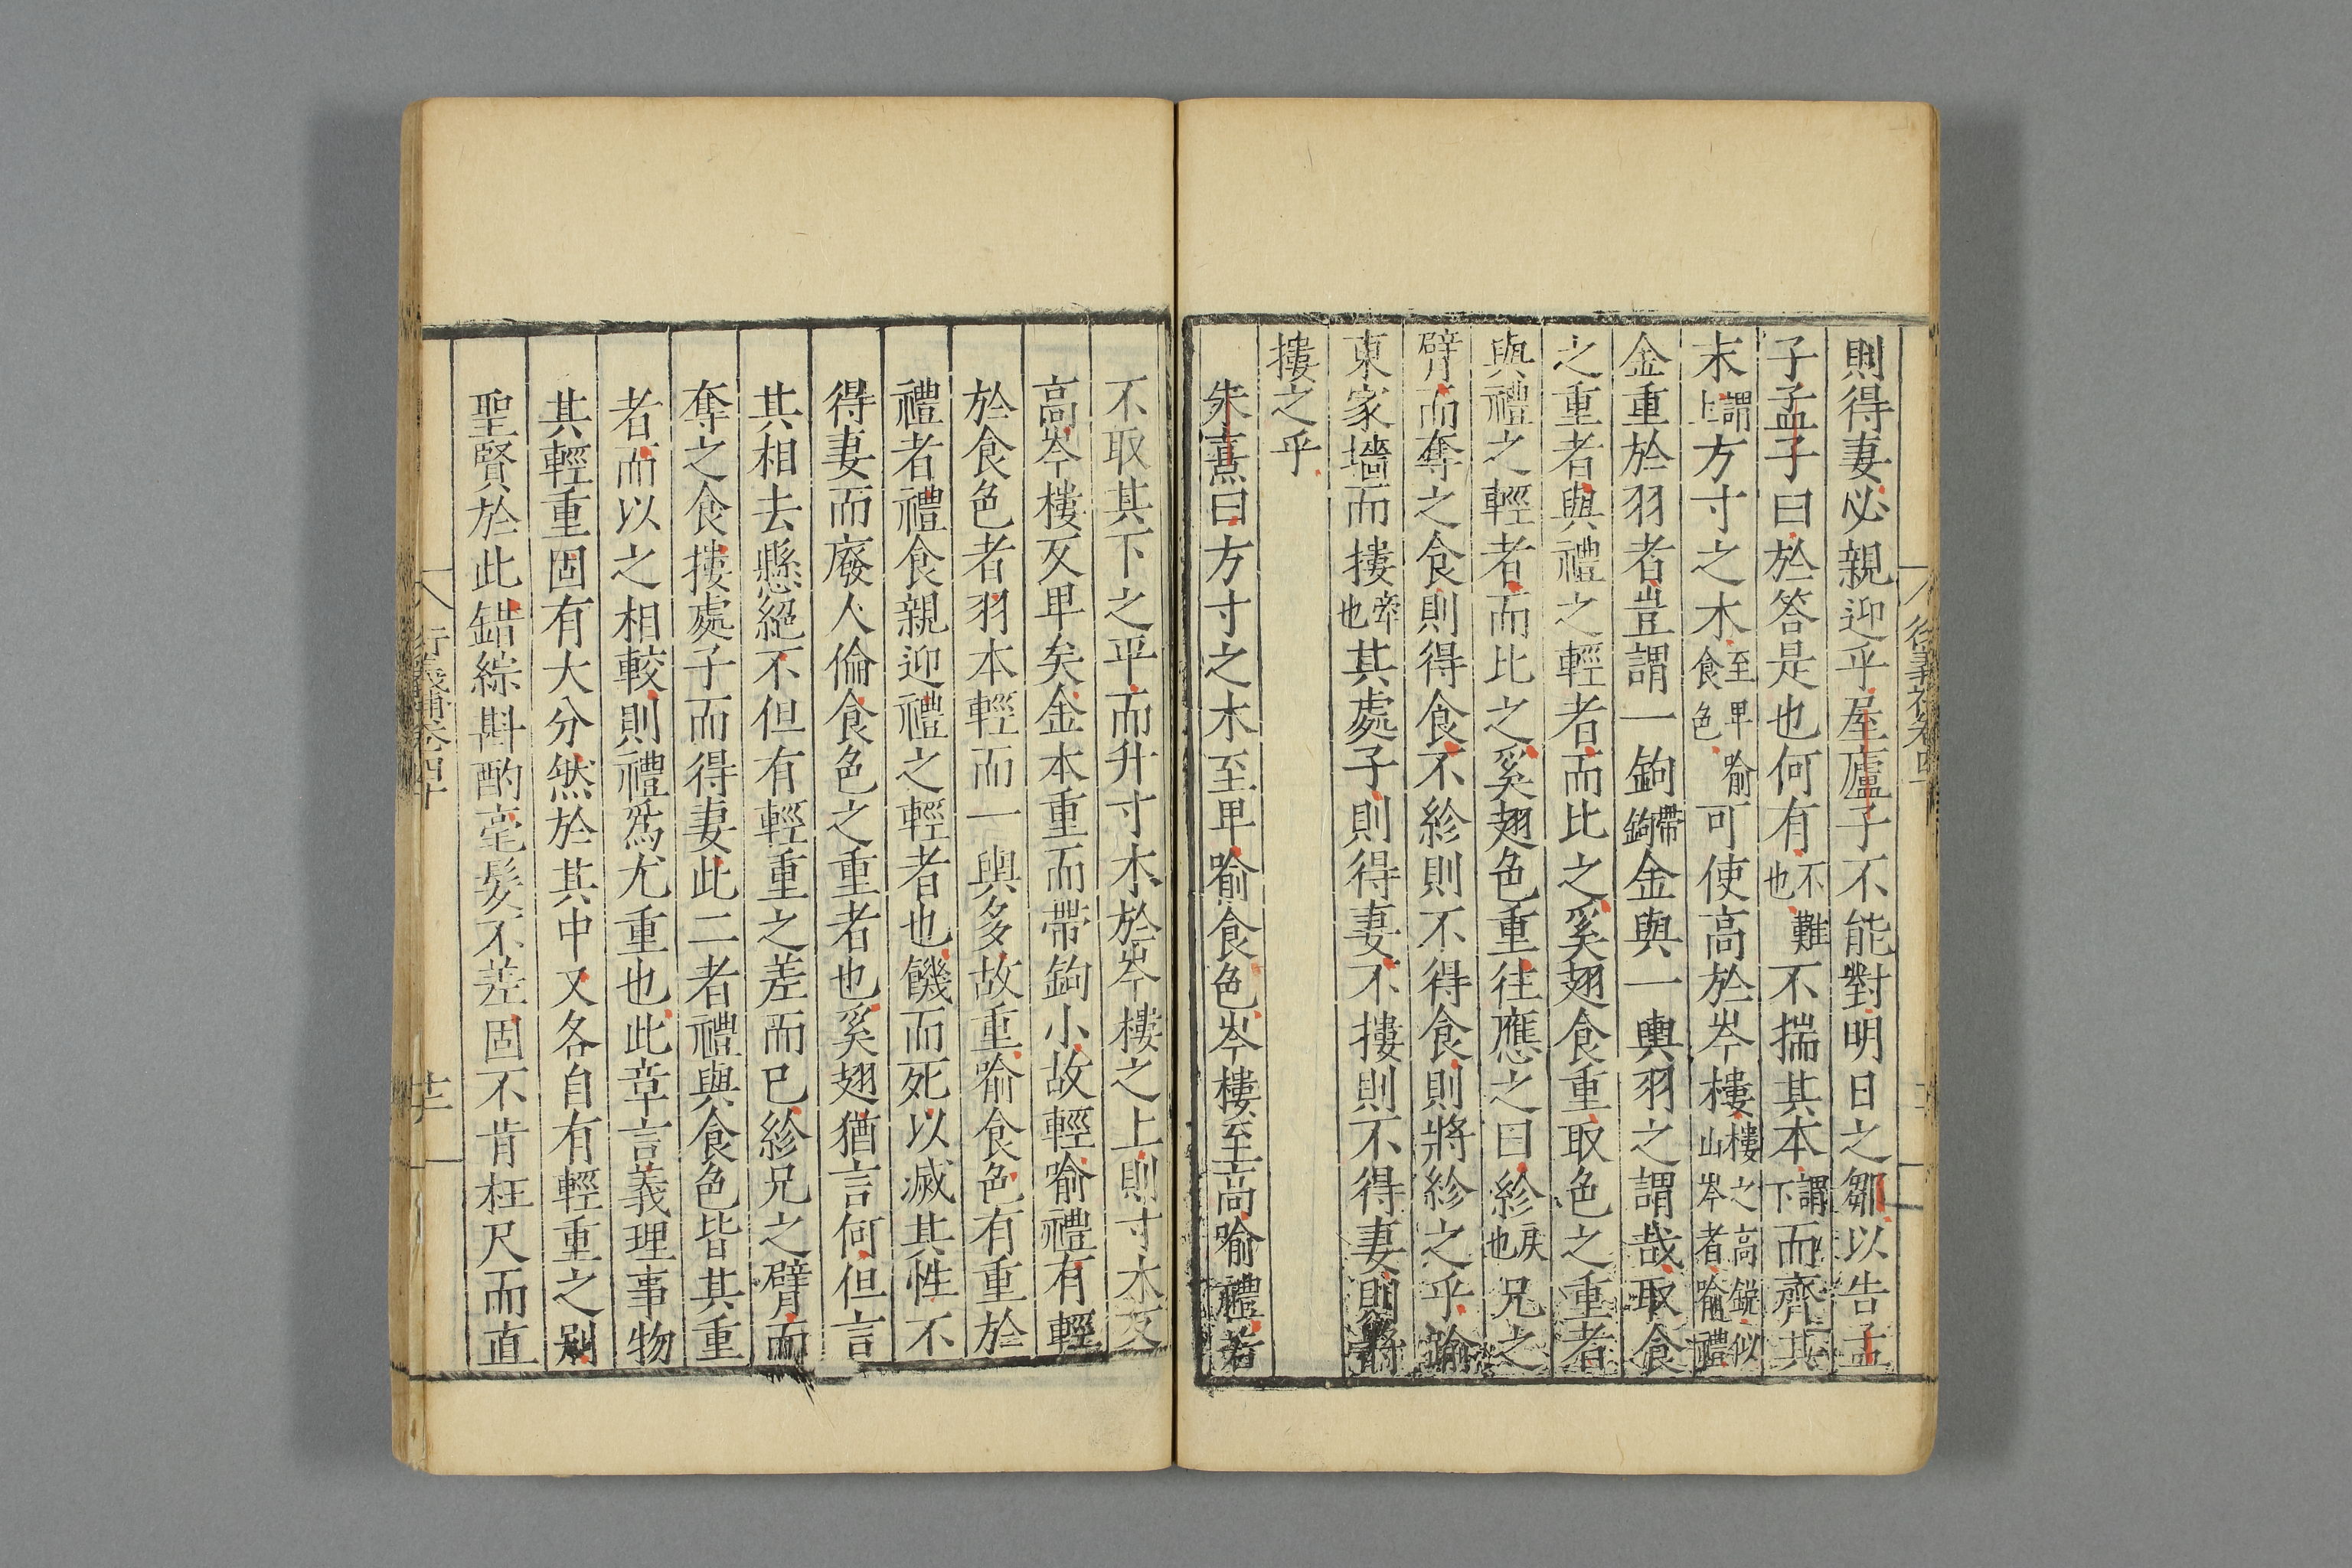 則得妻必親迎乎屋廬子不能對明日之鄒以告孟
子孟子曰於答是也何有不難也不揣其本謂下而齊其
末謂上方寸之木至卑喻食色可使高於岑樓樓之高銳似山岑者喻禮
金重於羽者豈謂一鉤帶鉤金與一輿羽之謂哉取食
之重者與禮之輕者而比之奚翅食重取色之重者
與禮之輕者而比之奚翅色重往應之曰紾戾也兄之
臂而奪之食則得食不紾則不得食則將紾之乎踰
東家墻而摟牽也其處子則得妻不摟則不得妻則將
摟之乎
朱熹曰方寸之木至卑喻食色岑樓至高喻禮若
不取其下之平而升寸木於岑樓之上則寸木反
高岑樓反卑矣金本重而帶鉤小故輕喻禮有輕
於食色者羽本輕而一輿多故重喻食色有重於
禮者禮食親迎禮之輕者也饑而死以滅其性不
得妻而廢人倫食色之重者也奚翅猶言何但言
其相去懸絕不但有輕重之差而已紾兄之臂而
奪之食摟處子而得妻此二者禮與食色皆其重
者而以之相較則禮爲尤重也此章言義理事物
其輕重固有大分然於其中又各自有輕重之別
聖賢於此錯綜斟酌毫髮不差固不肯枉尺而直
行義補卷四十